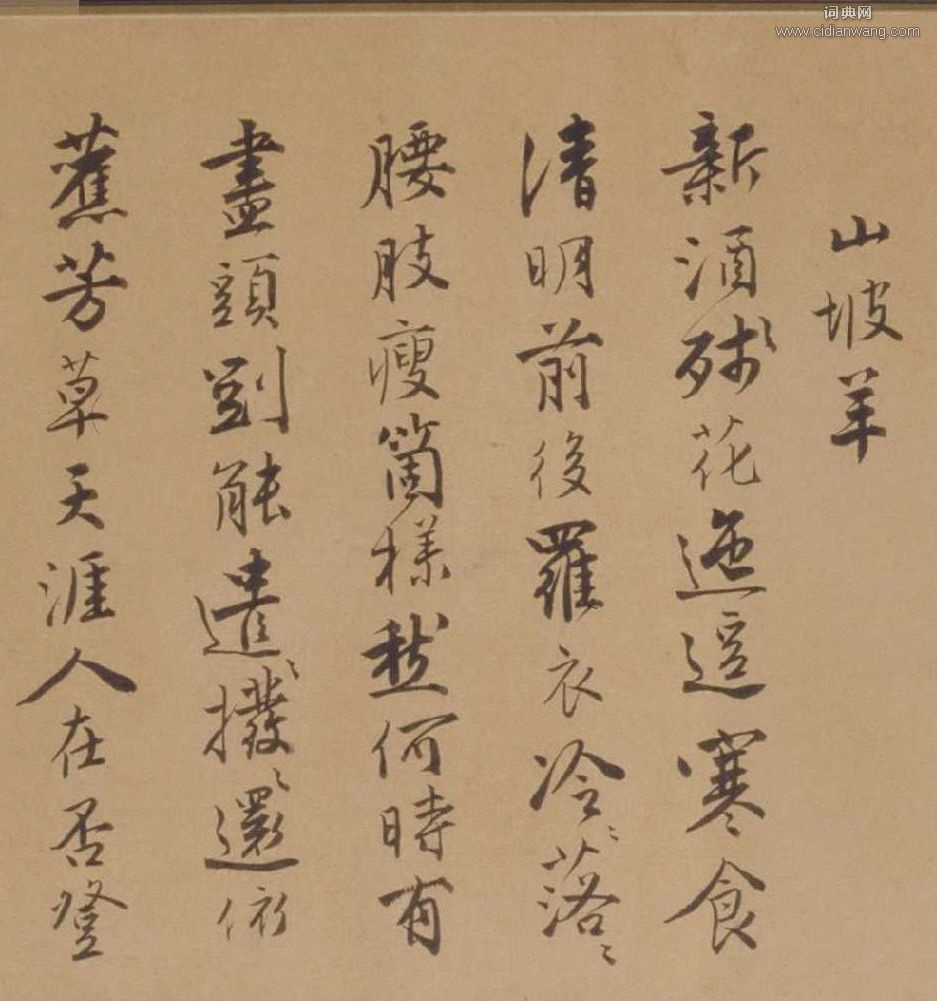 词典网
www.cidianwang.com
山坡羊
新酒殘花迤逗寒食
清明前後羅衣冷〻落〻
腰肢瘦箇樣愁何時有
盡頭能遣〻撥〻還依
舊芳草天涯人在否登